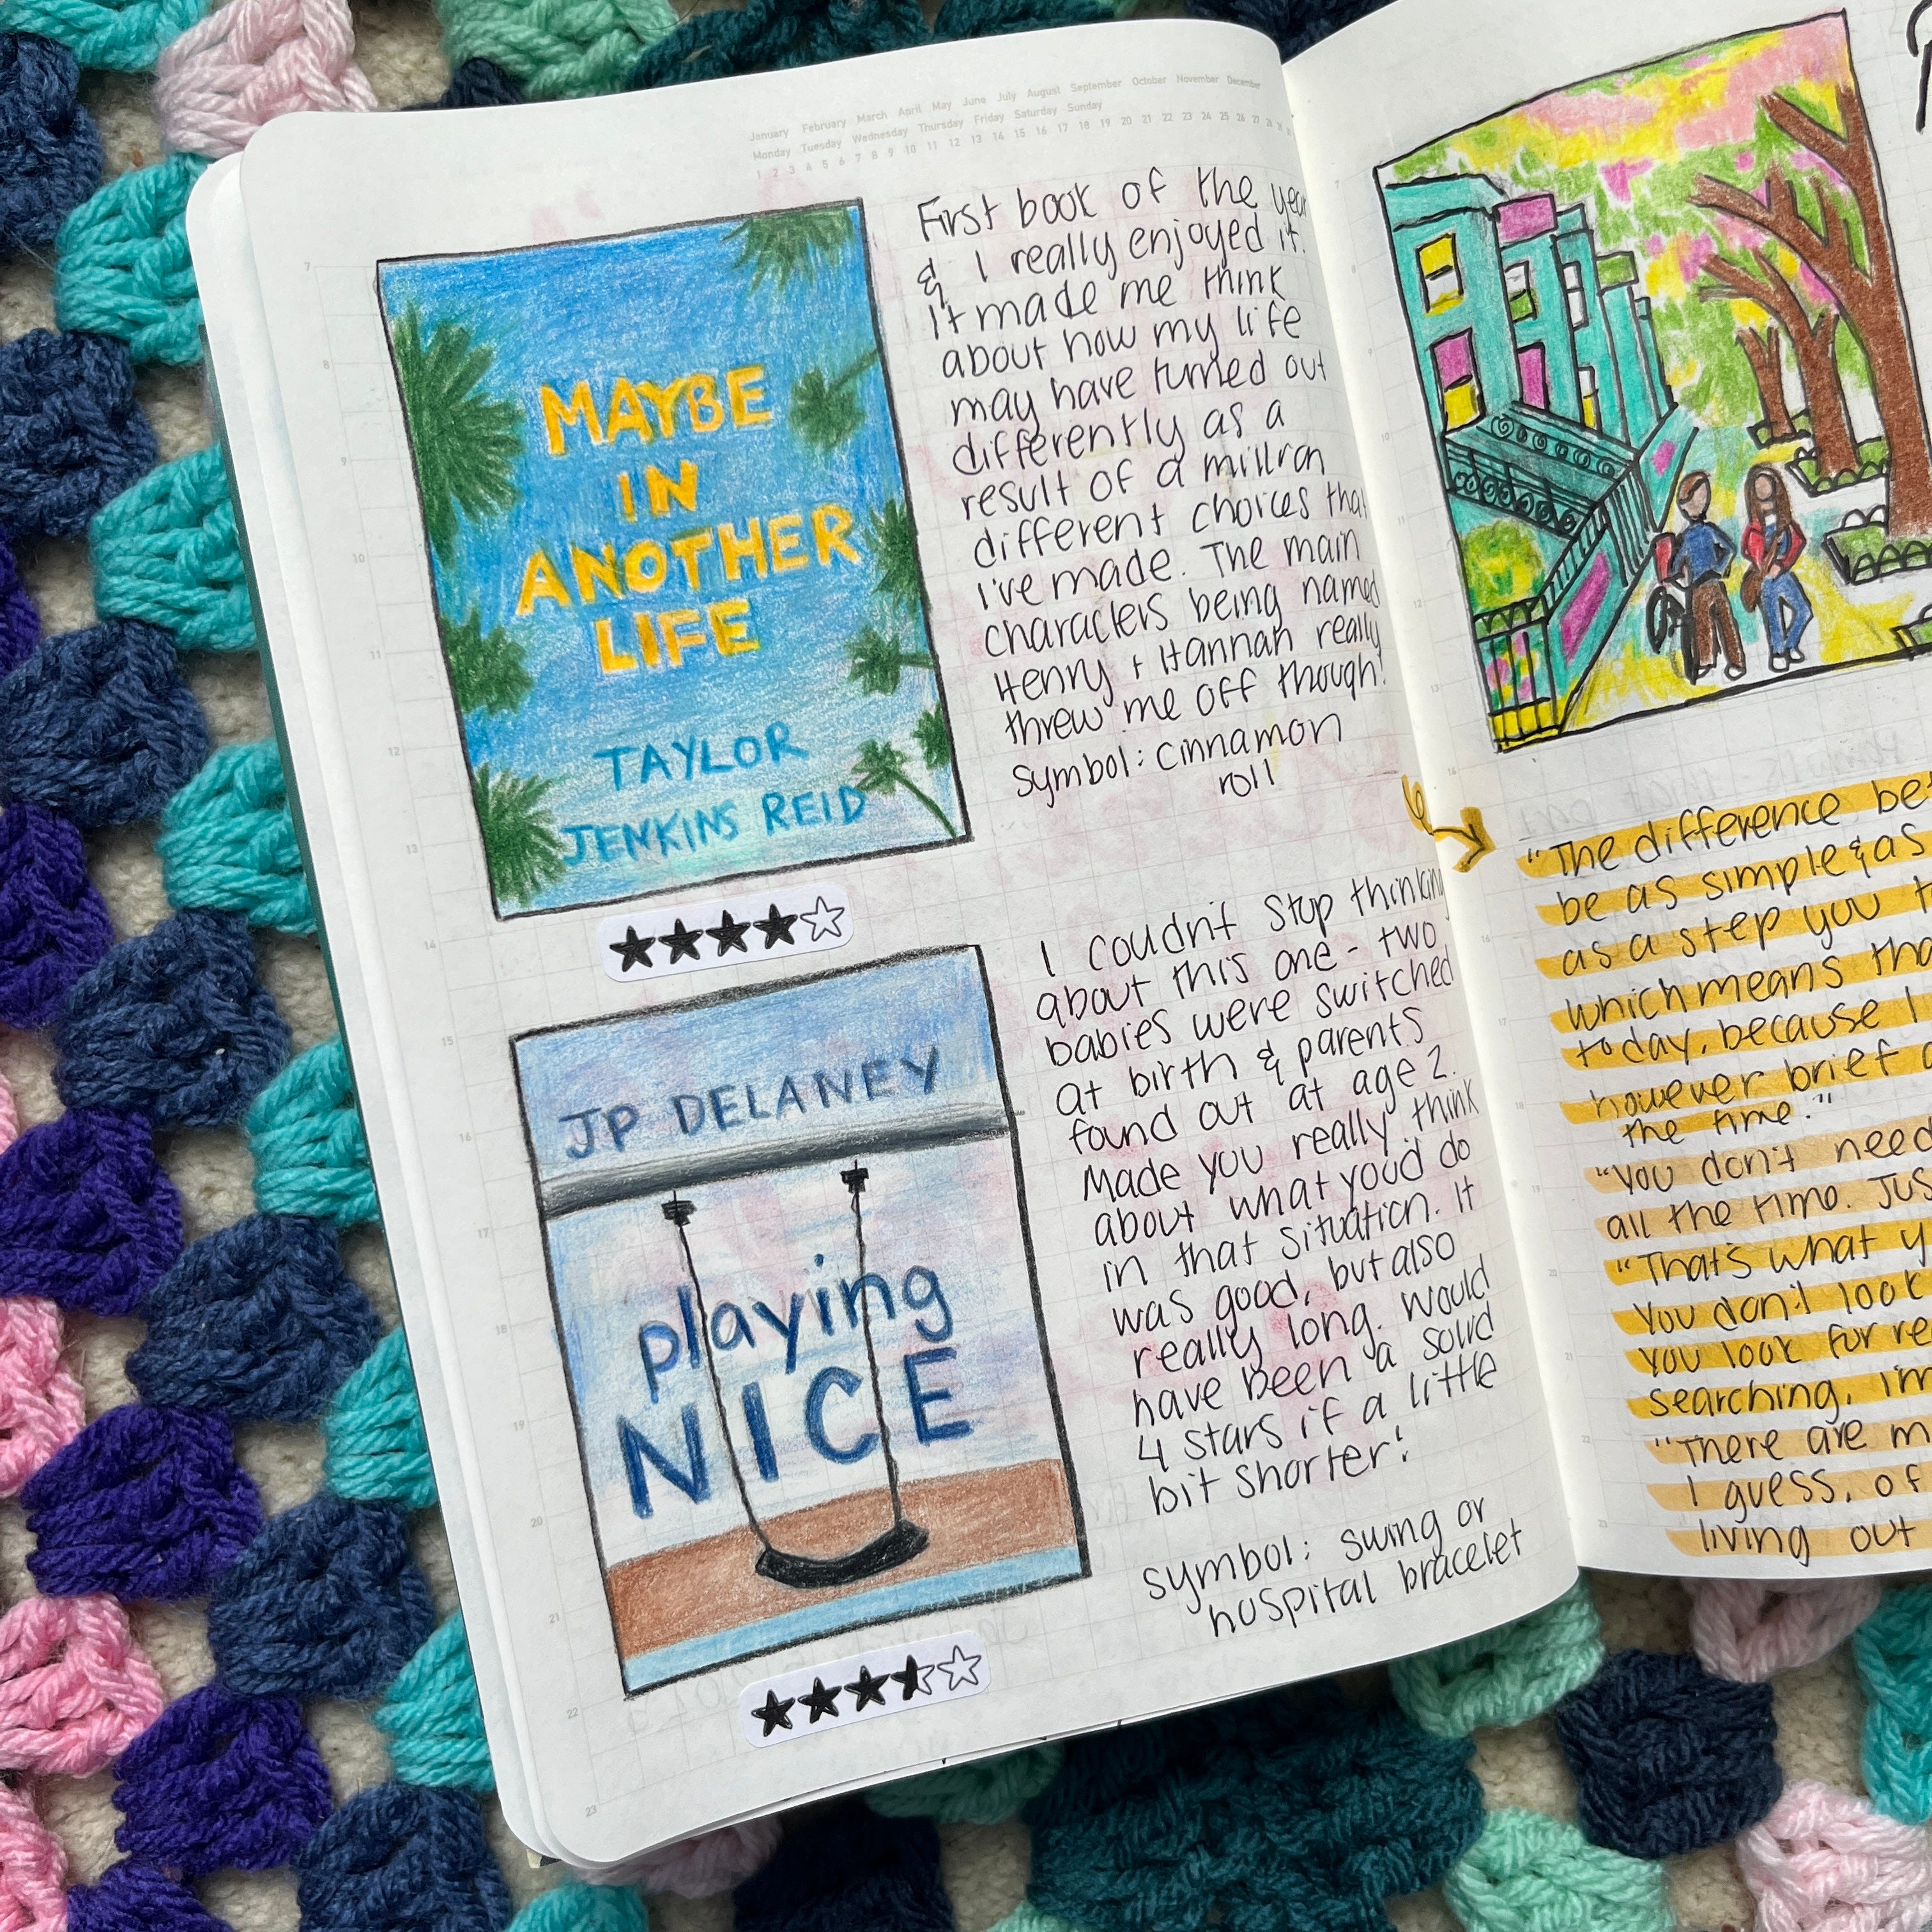 January February March April May June July August September October November December
Monday Tuesday Wednesday Thursday Friday Saturday Sunday
1 2 3 4 5 6 7 8 9 10 11 12 13 14 15 16 17 18 19 20 21 22 23 24 25 26 27 28
MAYBE
IN
ANOTHER
LIFE
TAYLOR
JENKINS REID
First book of the year
& I really enjoyed it.
It made me think
about how my life
may have turned out
differently as a
result of a million
different choices that
I've made. The main
characters being named
Henry + Hannah really
threw me off though!
symbol: cinnamon
roll
JP DELANEY
playing
NICE
I couldn't stop thinking
about this one - two
babies were switched
at birth & parents
found out at age 2.
Made you really think
about what you'd do
in that situation. It
was good, but also
really long. Would
have been a solid
4 stars if a little
bit shorter!
symbol: swing or
hospital bracelet
7
8
9
10
11
12
13
14
15
16
17
18
19
20
21
22
23
"The difference
be as simple & as
as a step you
which means
today, because I
however brief
the time."
"You don't need
all the time.
"That's what
You don't look
you look for
searching. I'm
"There are
I guess, of
living out